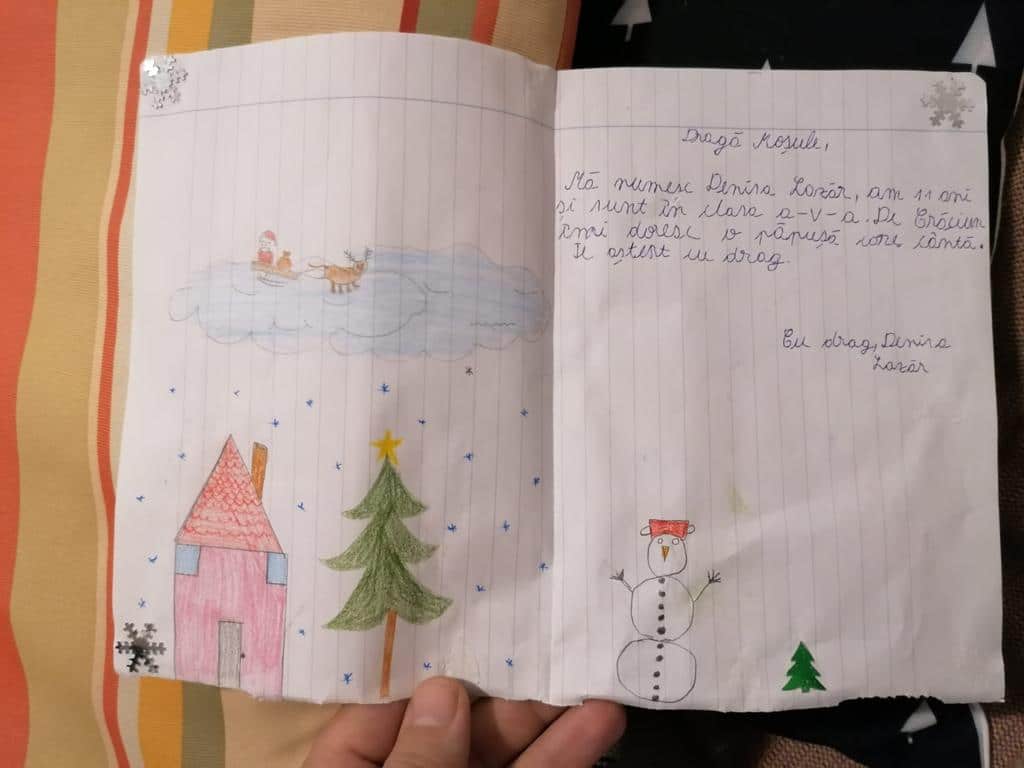 Dragă Moșule,
Mă numesc Denisa Lazăr, am 11 ani
și sunt în clasa a-V-a. De Crăciun
îmi doresc o păpușă care cântă.
Te aștept cu drag.
Cu drag, Denisa
Lazăr